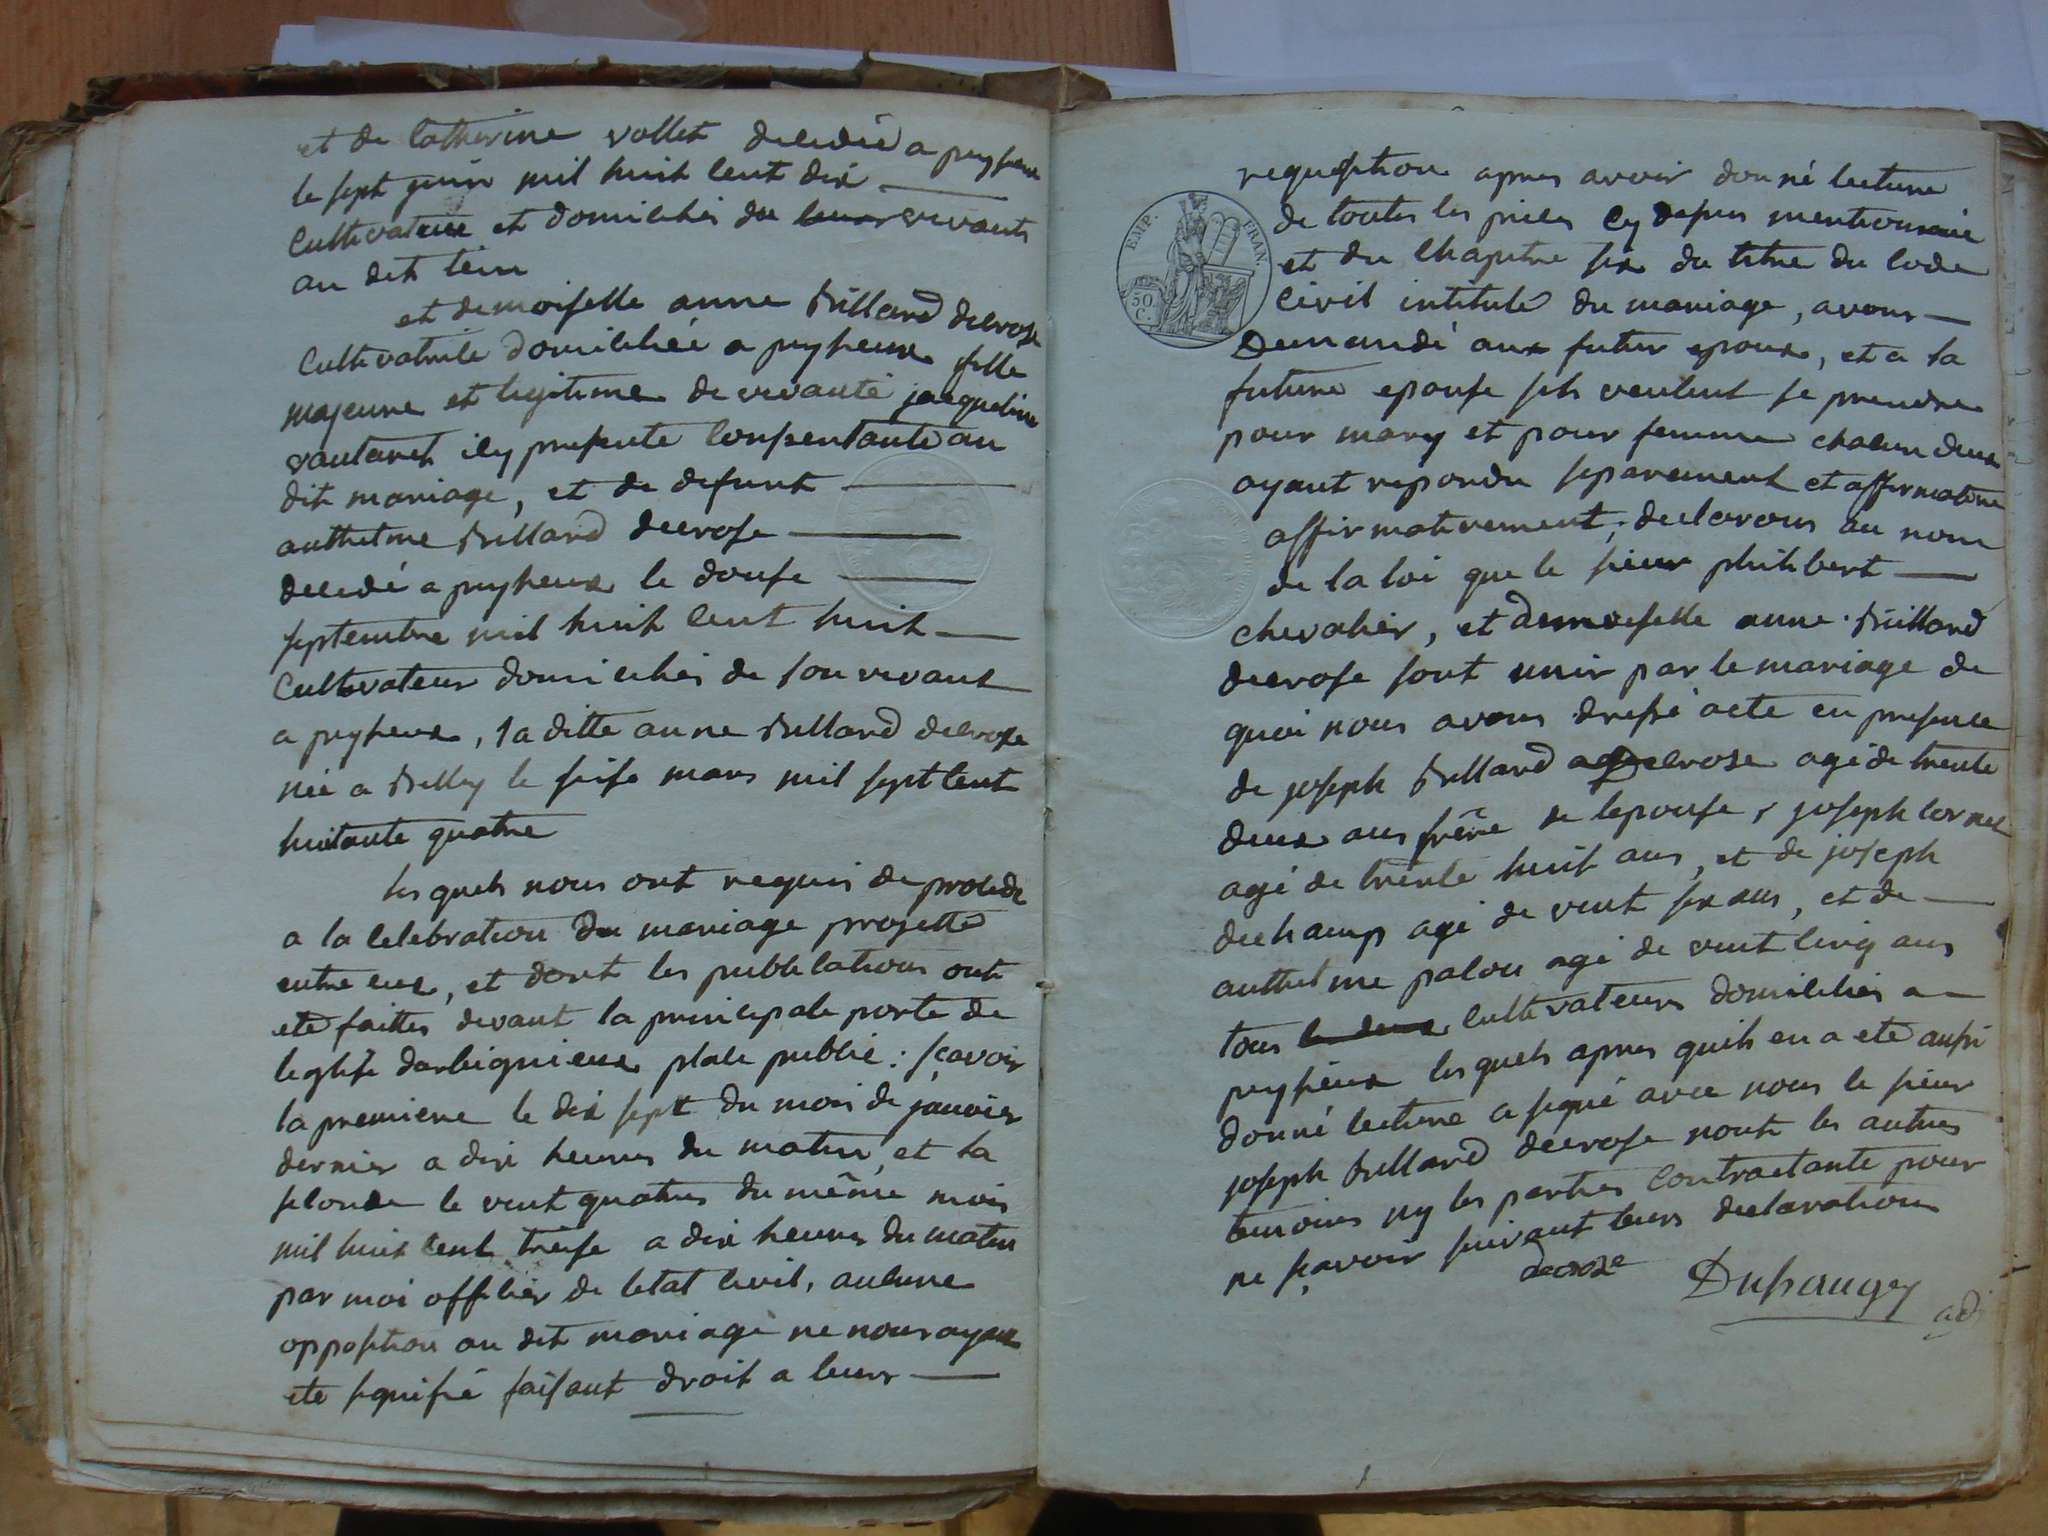 et de Catherine vollet decedée a peyzieux
le sept juin mil huit cent dix
Cultivateurs et domiciliés de leurs vivants
au dit lieu
et demoiselle anne Billard decrose
Cultivatrice domiciliée a peyzieux fille
majeure et legitime de vivante jacqueline
vautaret icy presente Consentante au
dit mariage, et de defunt
anthelme Billard decrose
decedé a peyzieux le douse
septembre mil huit cent huit
Cultivateur domiciliés de son vivant
a peyzieux, la ditte anne Billard decrose
née a Belley le seise mars mil sept cent
huitante quatre
lesquels nous ont requis de proceder
a la Celebration du mariage projetté
entre eux, et dont les publications ont
eté faittes devant la principale porte de
leglise darbignieux place public : sçavoir
la premiere le dix sept du mois de janvier
dernier a dix heures du matin, et la
seconde le vent quatres du même mois
mil huit cent treise a dix heures du matin
par moi officier de letat civil, aucune
opposition au dit mariage ne nous ayant
ete signifié faisant droit a leurs
requisition apres avoir donné lecture
EMP. FRAN.
50 C.
de toutes les pieces Cy depus mentionnée
et du Chapitre six du titre du Code
Civil intitulé du mariage, avons
Demandé aux futur epoux, et a la
future epouse sils veulent se prendre
pour mary et pour femme chacun deux
ayant repondu separement et affirmative
affirmativement ; declarons au nom
de la loi que le sieur philibert
chevalier, et demoiselle anne Billard
decrose sont unir par le mariage de
quoi nous avons dressé acte en presence
de joseph Billard decrose agé de trente
deux ans frère de lepouse, joseph Cornet
agé de trente huit ans, et de joseph
dechamp agé de vent six ans, et de
anthelme palou agé de vent cinq ans
tous le deux Cultivateurs domiciliés a
peyzieux lesquels apres quils en a eté aussi
donné lecture a signé avec nous le sieur
joseph Billard decrose nont les autres
temoins ny les parties Contractante pour
ne sçavoir suivant leurs declarations
decrose Dupaugey adj